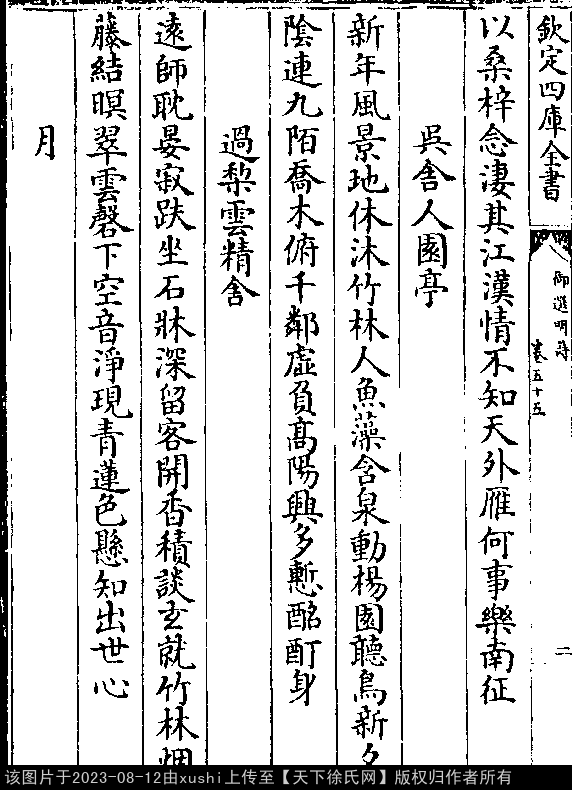 欽定四庫全書
御選明詩
卷五十五
二
以桑梓念淒其江漢情不知天外雁何事樂南征
吳舍人園亭
新年風景地休沐竹林人魚藻含泉動楊園聽鳥新夕
陰連九陌喬木俯千鄰虛負高陽興多慙酩酊身
過梨雲精舍
遠師耽晏寂趺坐石牀深留客開香積談玄就竹林烟
藤結暝翠雲磬下空音淨現青蓮色懸知出世心
月
该图片于2023-08-12由xushi上传至【天下徐氏网】版权归作者所有